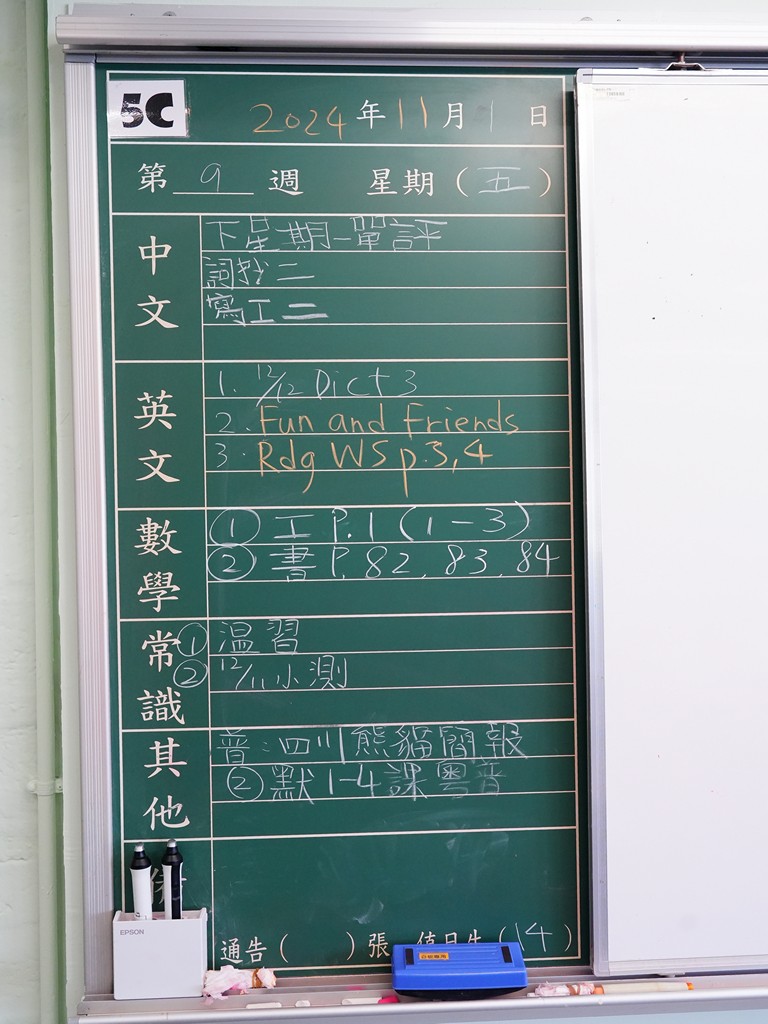 5C
2024年11月1日
第9週 星期（五）
中文
下星期一單評
詞找二
寫工二
英文
1. 12/12 Dict 3
2. Fun and Friends
3. Rdg WS p.3,4
數學
① 工 P.1 (1-3)
② 書 P.82, 83, 84
常識
① 温習
② 12/11 小測
其他
普：四川熊貓簡報
② 默1-4課粵普
通告（ ）張 值日生（14）
EPSON